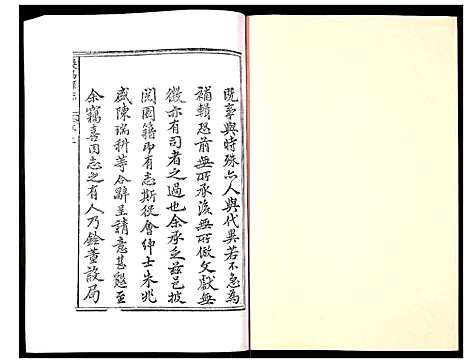 既事與時殊亦人與代異若不急為
補輯恐前無所承後無所倣文獻無
徵亦有司者之過也余承乏茲邑披
閱圖籍即有志斯役會紳士朱兆
盛陳瑞科等合辭呈請意甚懇至
余竊喜同志之有人乃詮董設局